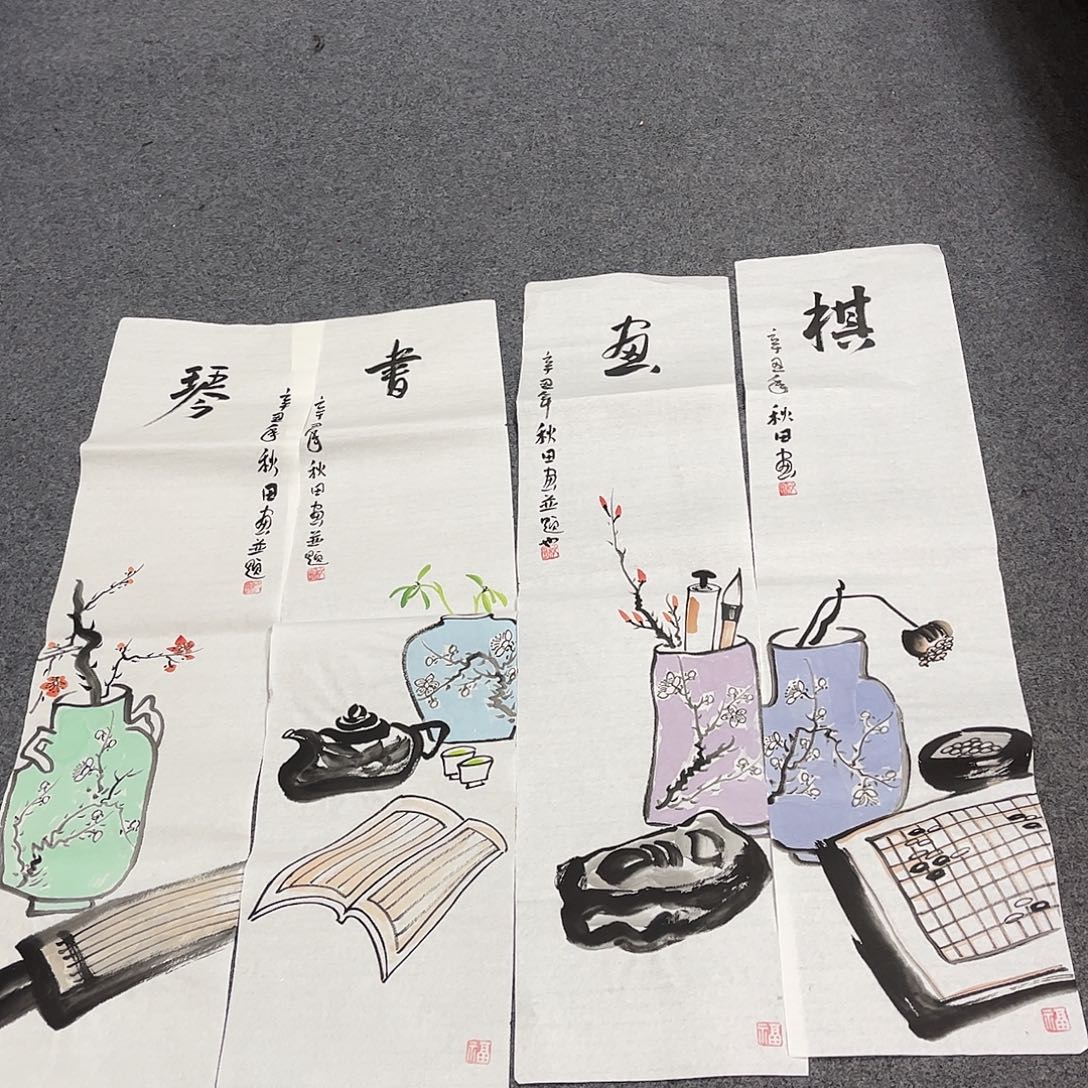 琴
辛丑年秋田画並题
書
辛丑年秋田画並题
画
辛丑年秋田画並题也
棋
辛丑年秋田画
福
福
福